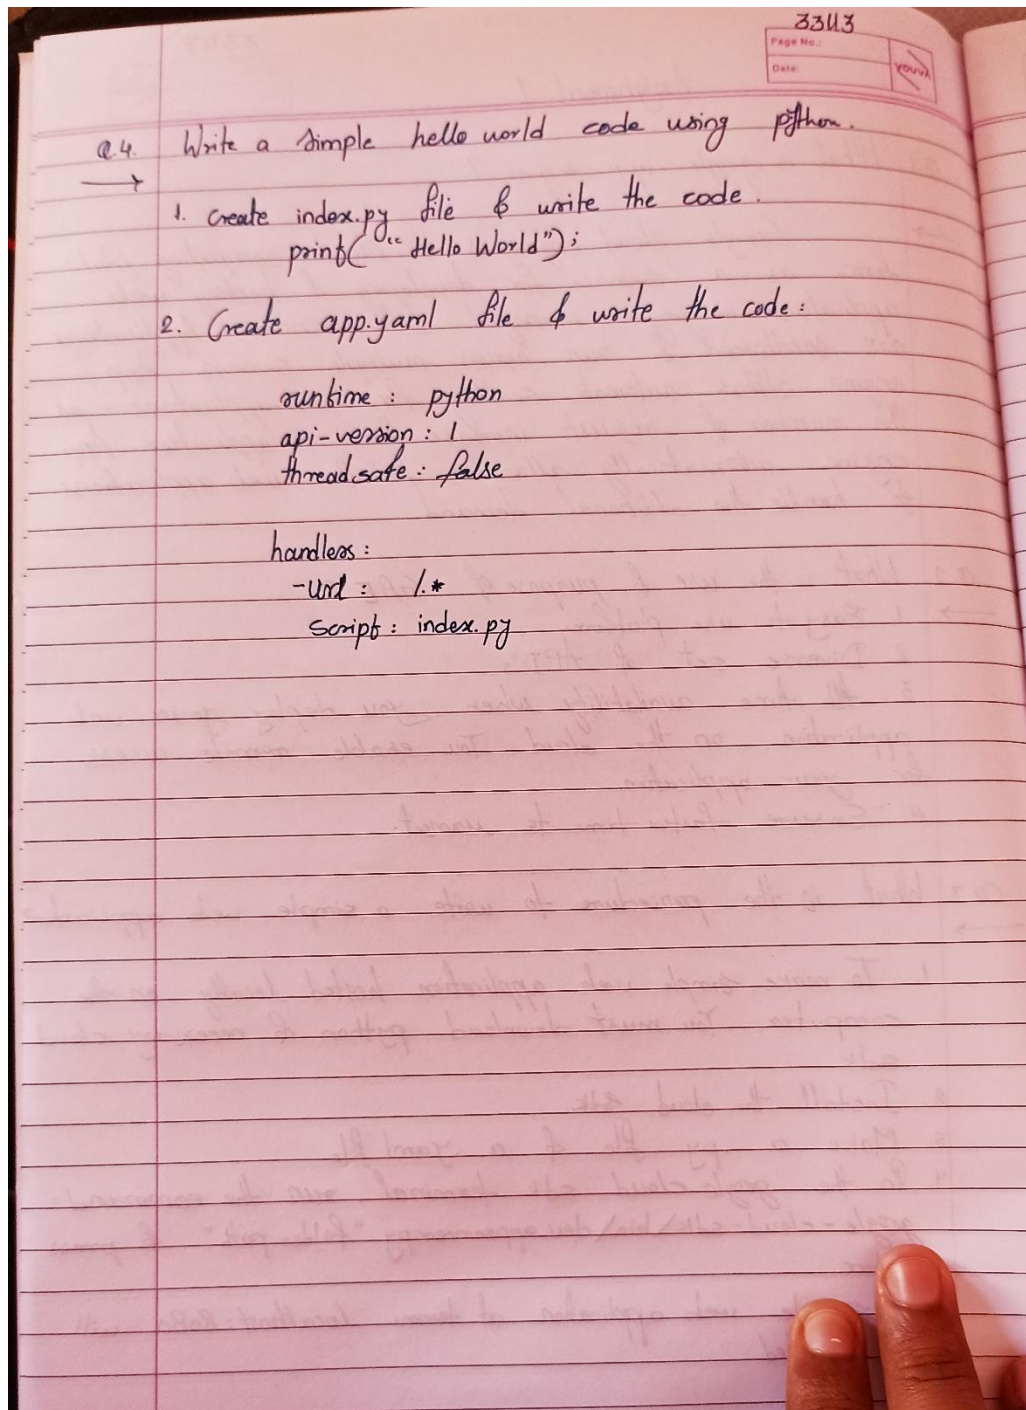 3343
Page No.:
Date:
YOUVA
Q.4. Write a simple hello world code using python.
1. Create index.py file & write the code.
print("Hello World");
2. Create app.yaml file & write the code:
runtime : python
api-version : 1
threadsafe : false
handlers :
-url : /.*
script : index.py